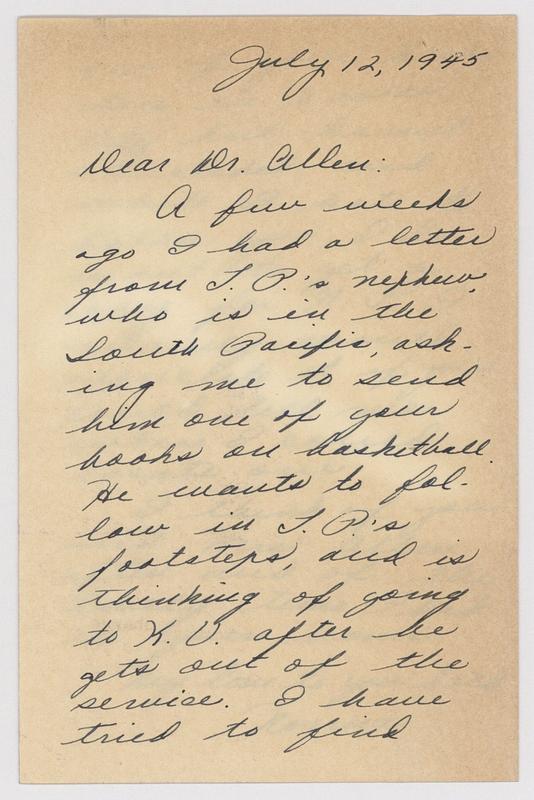 July 12, 1945
Dear Dr. Allen:
A few weeks
ago I had a letter
from T. P.'s nephew,
who is in the
South Pacific, ask-
ing me to send
him one of your
books on basketball.
He wants to fol-
low in T. P.'s
footsteps, and is
thinking of going
to K. U. after he
gets out of the
service. I have
tried to find